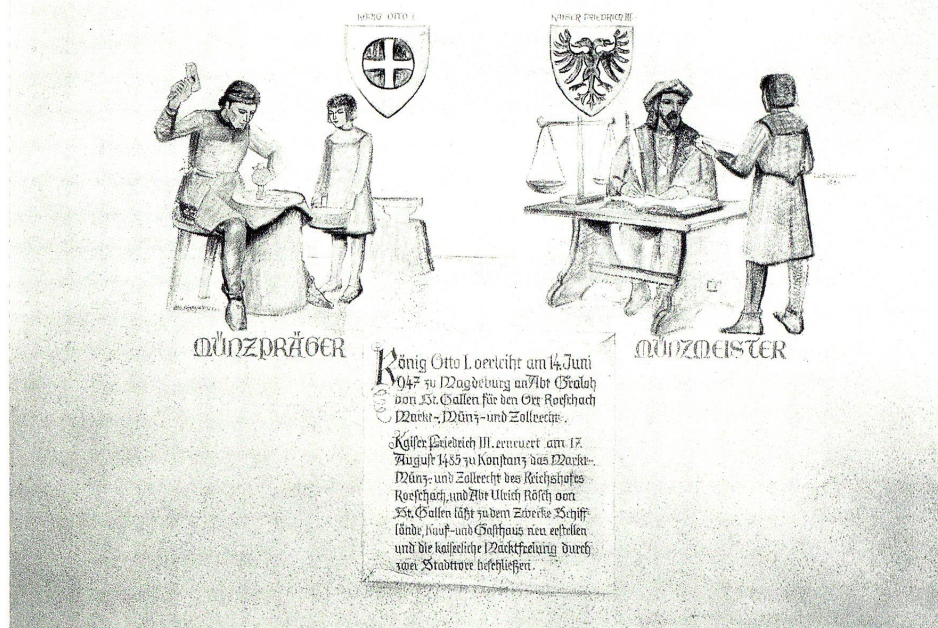 KÖNIG OTTO I.
KAISER FRIEDRICH III.
MÜNZPRÄGER
MÜNZMEISTER
König Otto I. verleiht am 14. Juni
947 zu Magdeburg an Abt Craloh
von St. Gallen für den Ort Rorschach
Markt-, Münz- und Zollrecht.
Kaiser Friedrich III. erneuert am 17.
August 1485 zu Konstanz das Markt-,
Münz- und Zollrecht des Reichshofes
Rorschach, und Abt Ulrich Rösch von
St. Gallen läßt zu dem Zwecke Schiff-
lände, Kauf- und Gasthaus neu erstellen
und die kaiserliche Marktfreiung durch
zwei Stadttore beschließen.